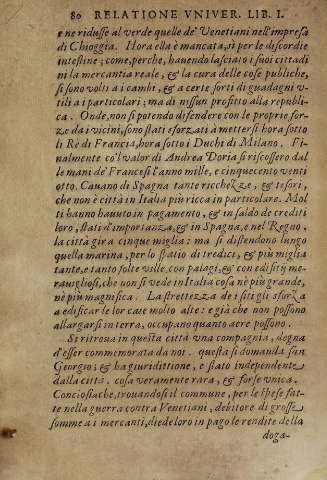 80 RELATIONE VNIVER. LIB. I.
ne ridusse al verde quelle de' Venetiani nell'impresa
di Chioggia. Hora ella è mancata, sì per le discordie
intestine; come, perche, hauendo lasciato i suoi cittadi
ni la mercantia reale, & la cura delle cose publiche,
si sono volti a i cambi, & a certe sorti di guadagni v-
tili a i particolari; ma di nissun profitto alla republi
ca. Onde, non si potendo difendere con le proprie for-
ze da i vicini, sono stati sforzati a mettersi hora sotto
li Rè di Francia, hora sotto i Duchi di Milano. Fi-
nalmente co'l valor di Andrea Doria si riscossero dal
le mani de' Francesi l'anno mille, e cinquecento venti
otto. Cauano di Spagna tante ricchezze, & tesori,
che non è città in Italia più ricca in particolare. Mol
ti hanno hauuto in pagamento, & in saldo de crediti
loro, stati d'importanza, & in Spagna, e nel Regno.
la città gira cinque miglia: ma si distendono lungo
quella marina, per lo spatio di tredici, & più miglia
tante, e tanto folte ville, con palagi, & con edifitij me-
rauigliosi, che non si vede in Italia cosa nè più grande,
nè più magnifica. La strettezza de i siti gli sforza
a edificar le lor case molto alte: e già che non possono
allargarsi in terra, occupano quanto aere possono.
Si ritroua in questa città vna compagnia, degna
d'esser commemorata da noi. questa si domanda san
Georgio; & ha giuridittione, e stato independente
dalla città. cosa veramente rara, & forse vnica.
Conciosiache, trouandosi il commune, per le spese fat-
te nella guerra contra Venetiani, debitore di grosse
somme a i mercanti, diede loro in pago le rendite della
doga-